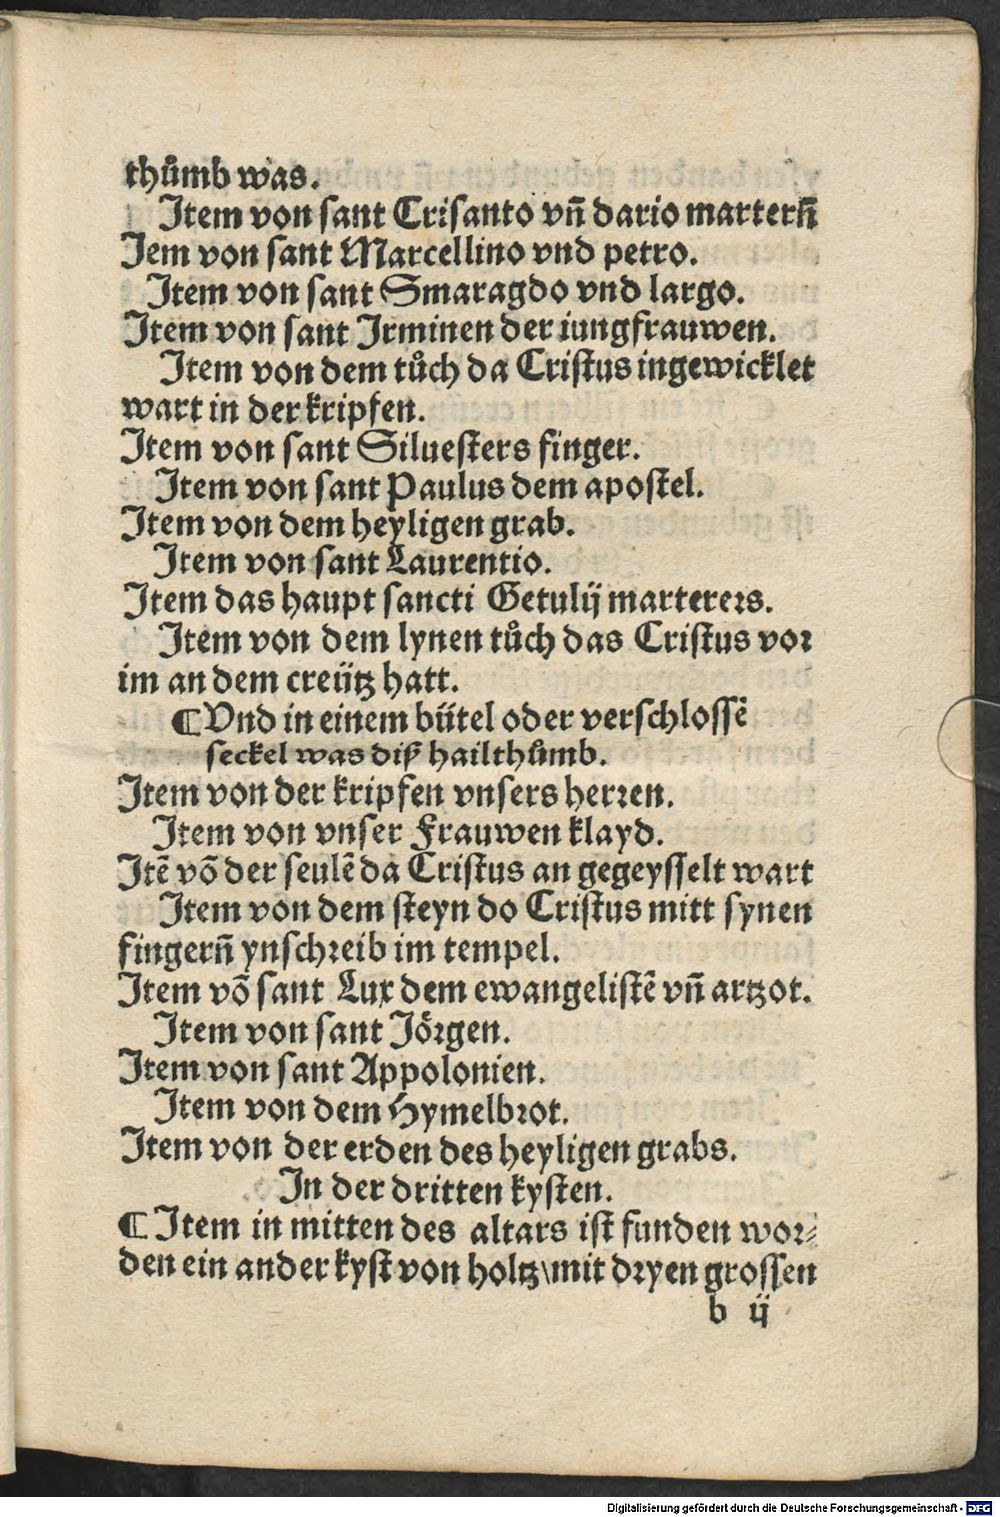 thůmb was.
Item von sant Crisanto vn̄ dario martern̄
Jem von sant Marcellino vnd petro.
Item von sant Smaragdo vnd largo.
Item von sant Irminen der iungfrauwen.
Item von dem tůch da Cristus ingewicklet
wart in der kripfen.
Item von sant Siluesters finger.
Item von sant Paulus dem apostel.
Item von dem heyligen grab.
Item von sant Laurentio.
Item das haupt sancti Getulij marterers.
Item von dem lynen tůch das Cristus vor
im an dem creütz hatt.
¶ Vnd in einem bütel oder verschlossē
seckel was diß hailthůmb.
Item von der kripfen vnsers herren.
Item von vnser Frauwen klayd.
Itē vō der seulē da Cristus an gegeysselt wart
Item von dem steyn do Cristus mitt synen
fingern̄ ynschreib im tempel.
Item vō sant Lux dem ewangelistē vn̄ artzot.
Item von sant Jörgen.
Item von sant Appolonien.
Item von dem Hymelbrot.
Item von der erden des heyligen grabs.
In der dritten kysten.
¶ Item in mitten des altars ist funden wor⸗
den ein ander kyst von holtz\mit dryen grossen
b ij
Digitalisierung gefördert durch die Deutsche Forschungsgemeinschaft - DFG